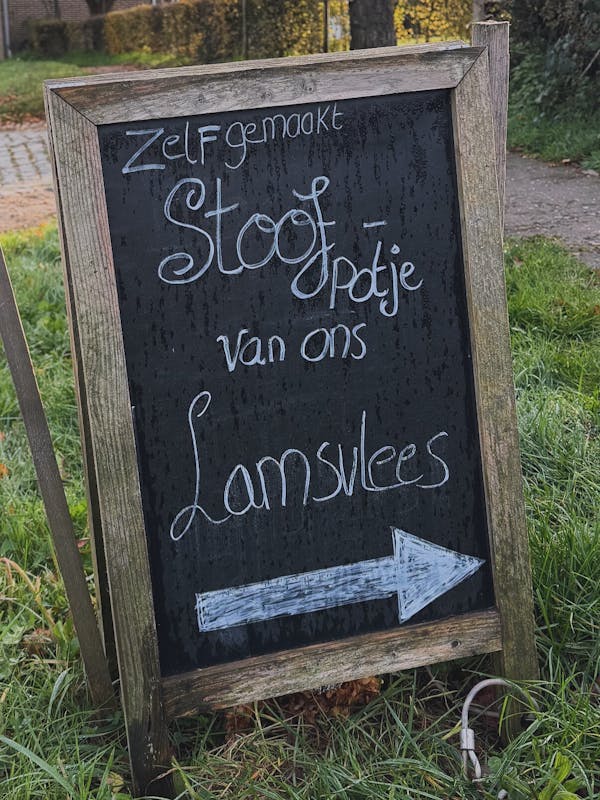 Zelfgemaakt
Stoof-
potje
van ons
Lamsvlees